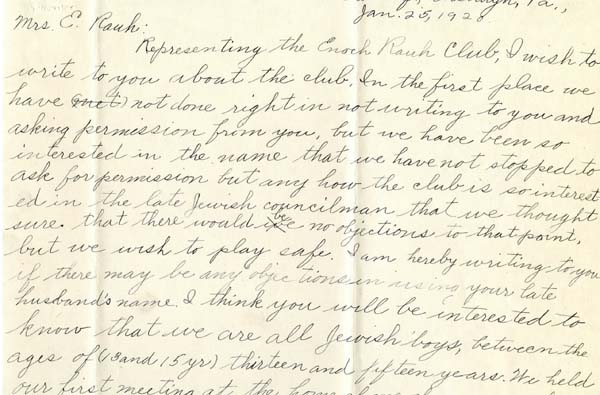 Pa.,
Jan. 25, 1928
Mrs. E. Rauh:
Representing the Enoch Rauh Club, I wish to
write to you about the club. In the first place we
have not done right in not writing to you and
asking permission from you, but we have been so
interested in the name that we have not stopped to
ask for permission but any how the club is so interest
ed in the late Jewish councilman that we thought
sure. that there would be no objections to that point,
but we wish to play safe. I am hereby writing to you
if there may be any objections in using your late
husband's name. I think you will be interested to
know that we are all Jewish boys, between the
ages of (13 and 15 yr) thirteen and fifteen years. We held
our first meeting at the home